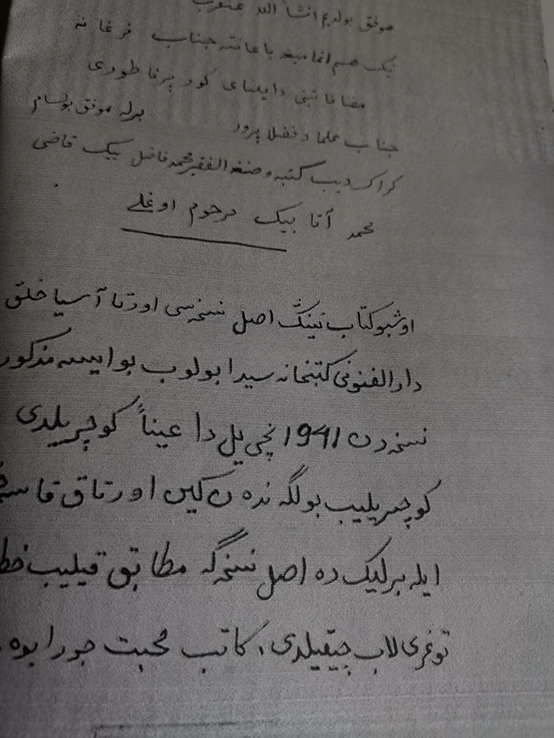 موفق بولدیم انشا الله عنقریب
نیک هم اتمامیغه باعانته جناب فرغانه
مضافاتینی دایلنای کور پرفا طوری
جناب علما و فضلا پرور بیرله موفق بولسام
کراک دیب کتبه وضنفه الفقیر محمد فاضل بیک قاضی
محمد آتا بیک مرحوم اوغلے
اوشبو کتاب نینگ اصل نسخه سی اورتا آسیا خلق
دارالفنونی کتبخانه سیدا بولوب بو ایسه مذکور
نسخه دن 1941 نچی یل دا عیناً کوچریلدی
کوچیریلیب بولگه ندن کین اورتاق قاسم
ایله بیرلیک ده اصل نسخه گه مطابق قیلیب خط
توغری لاب چیقیلدی، کاتب محبت جورابوه